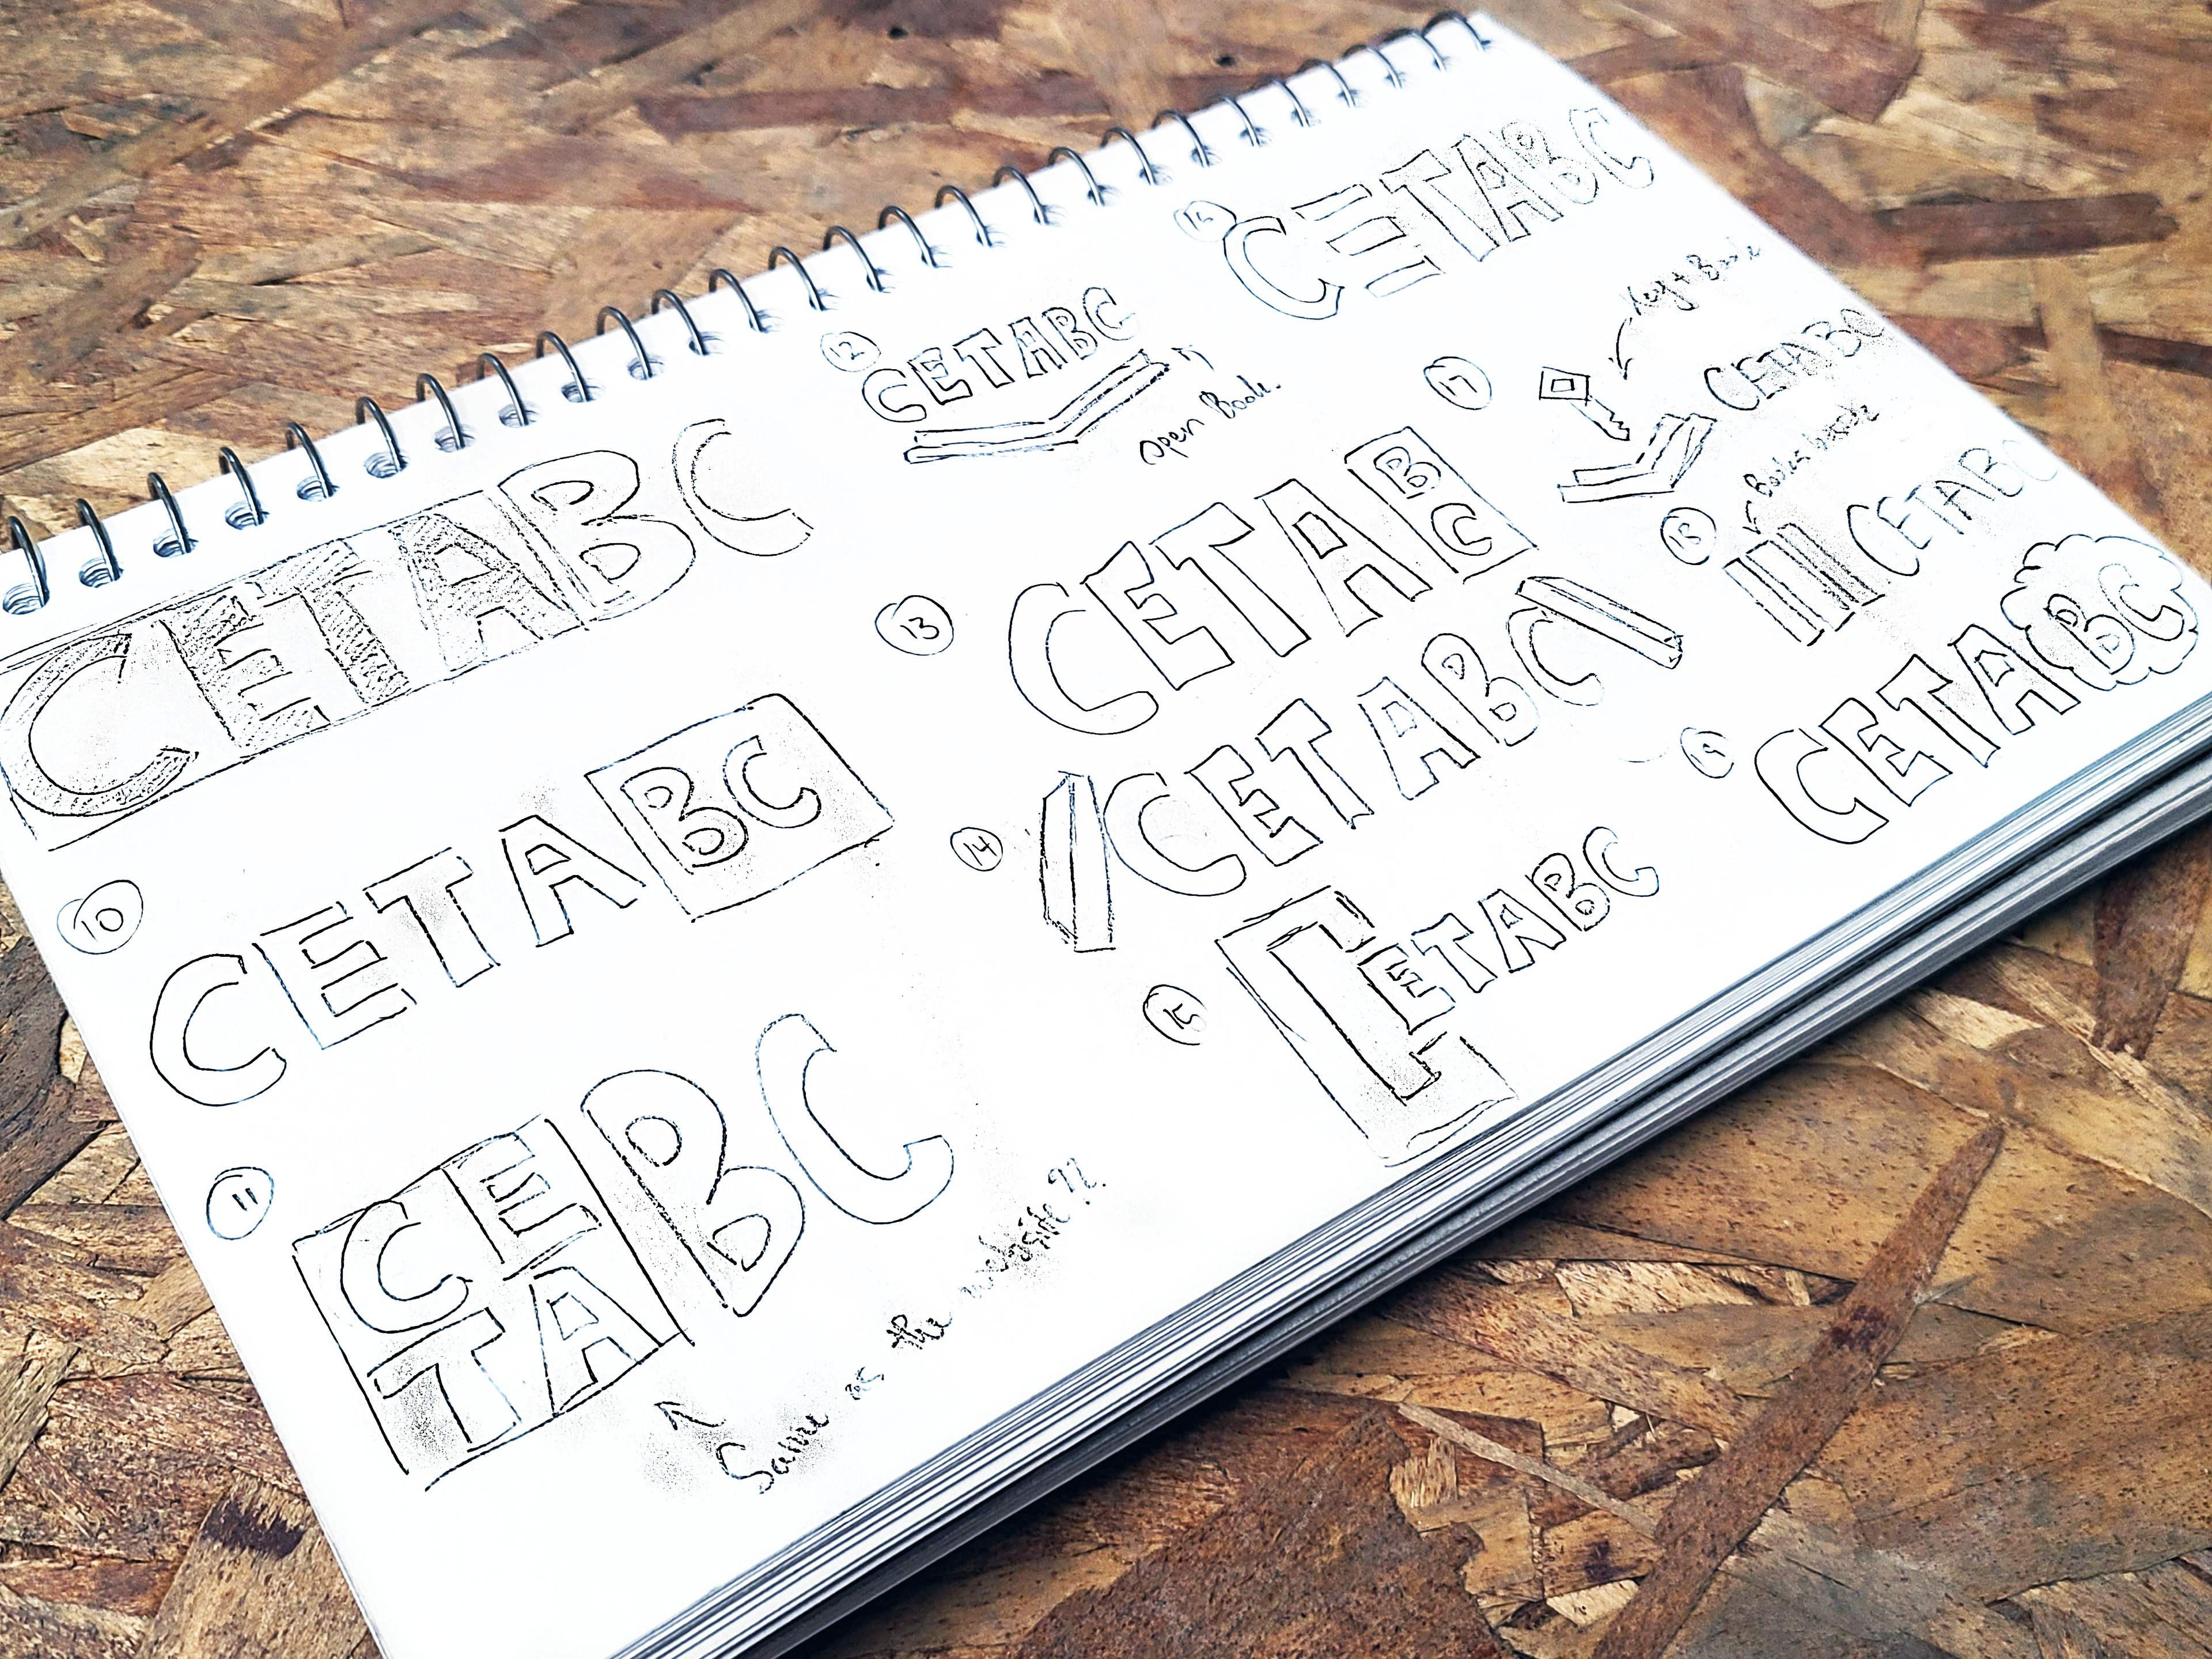 CETABC
10
CETABC
11
CE
TA
BC
Same as the website ??
12
CETABC
open Book.
13
CETA
B
C
14
CETABC
15
CETABC
16
CETABC
17
Key + Book
CETABC
18
CETABC
19
CETABC